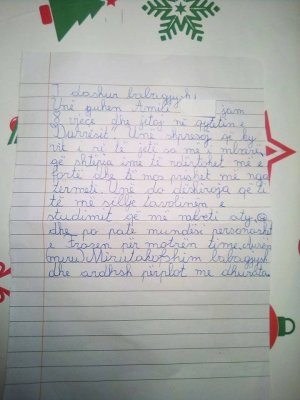 I dashur babagjysh!
Unë quhem Amili jam
8 vjeçe dhe jetoj në qytetin e
Durrësit". Unë shpresoj që ky
vit i ri të jetë sa më i mbarë,
që shtëpia ime të ndërtohet më e
fortë dhe të mos prishet më nga
tërmeti. Unë do dëshiroja që ti
të më sillje tavolinën e
studimit që më mbeti aty,
dhe po patë mundësi personazhet
e Frozen për motrën time,
Mirutakofshim babagjysh
dhe ardhsh përplot me dhurata.